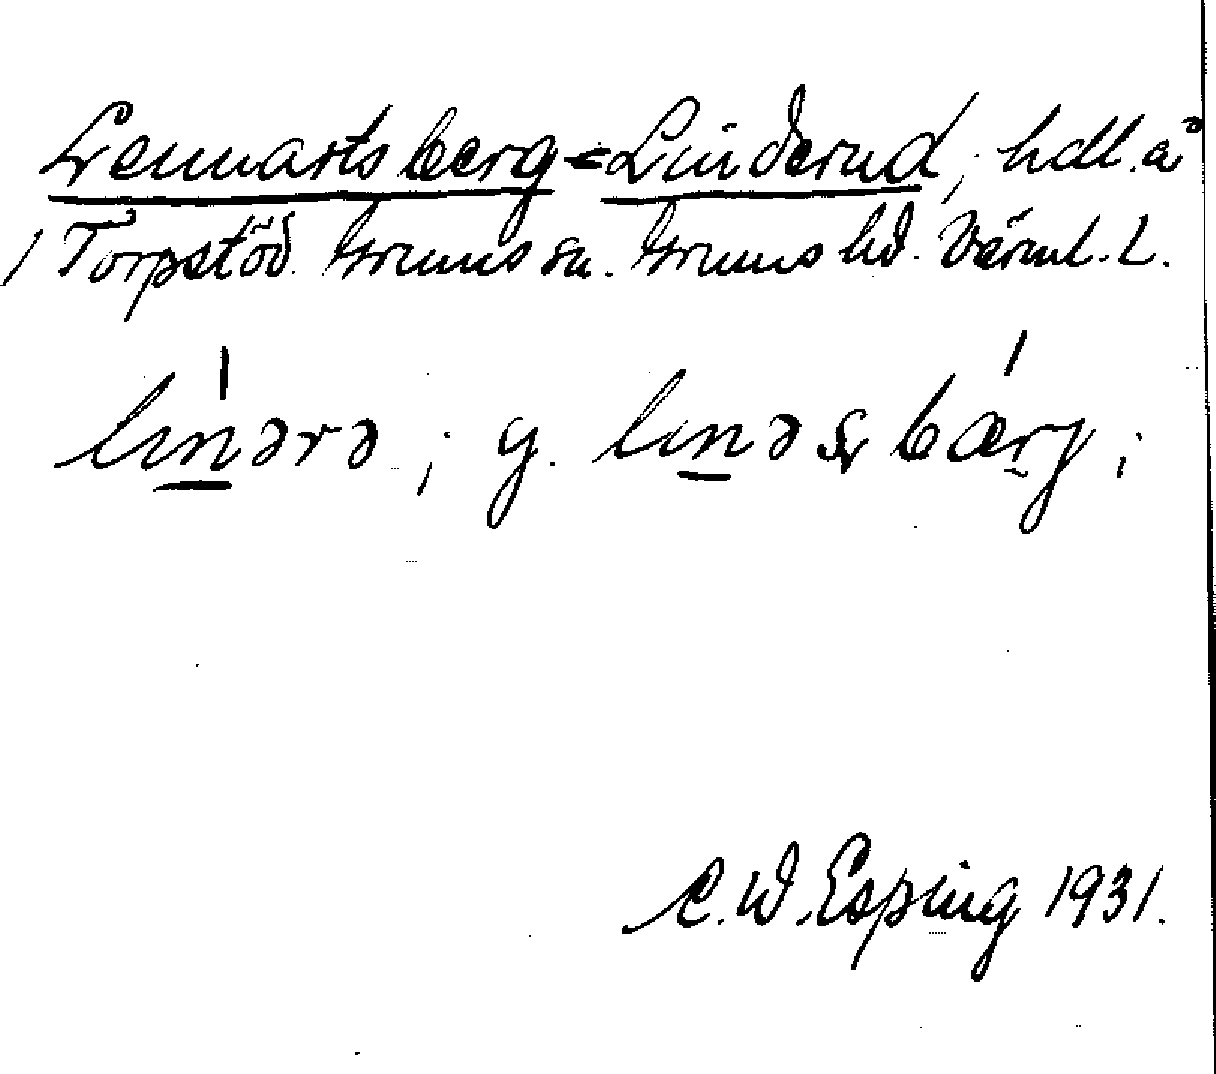 Lennartsberg = Linderud, hdl. å
1 Torpstöd. Grums sn. Grums hd. Värml. L.
linərə; y. linəsbærj;
C. W. Esping 1931.